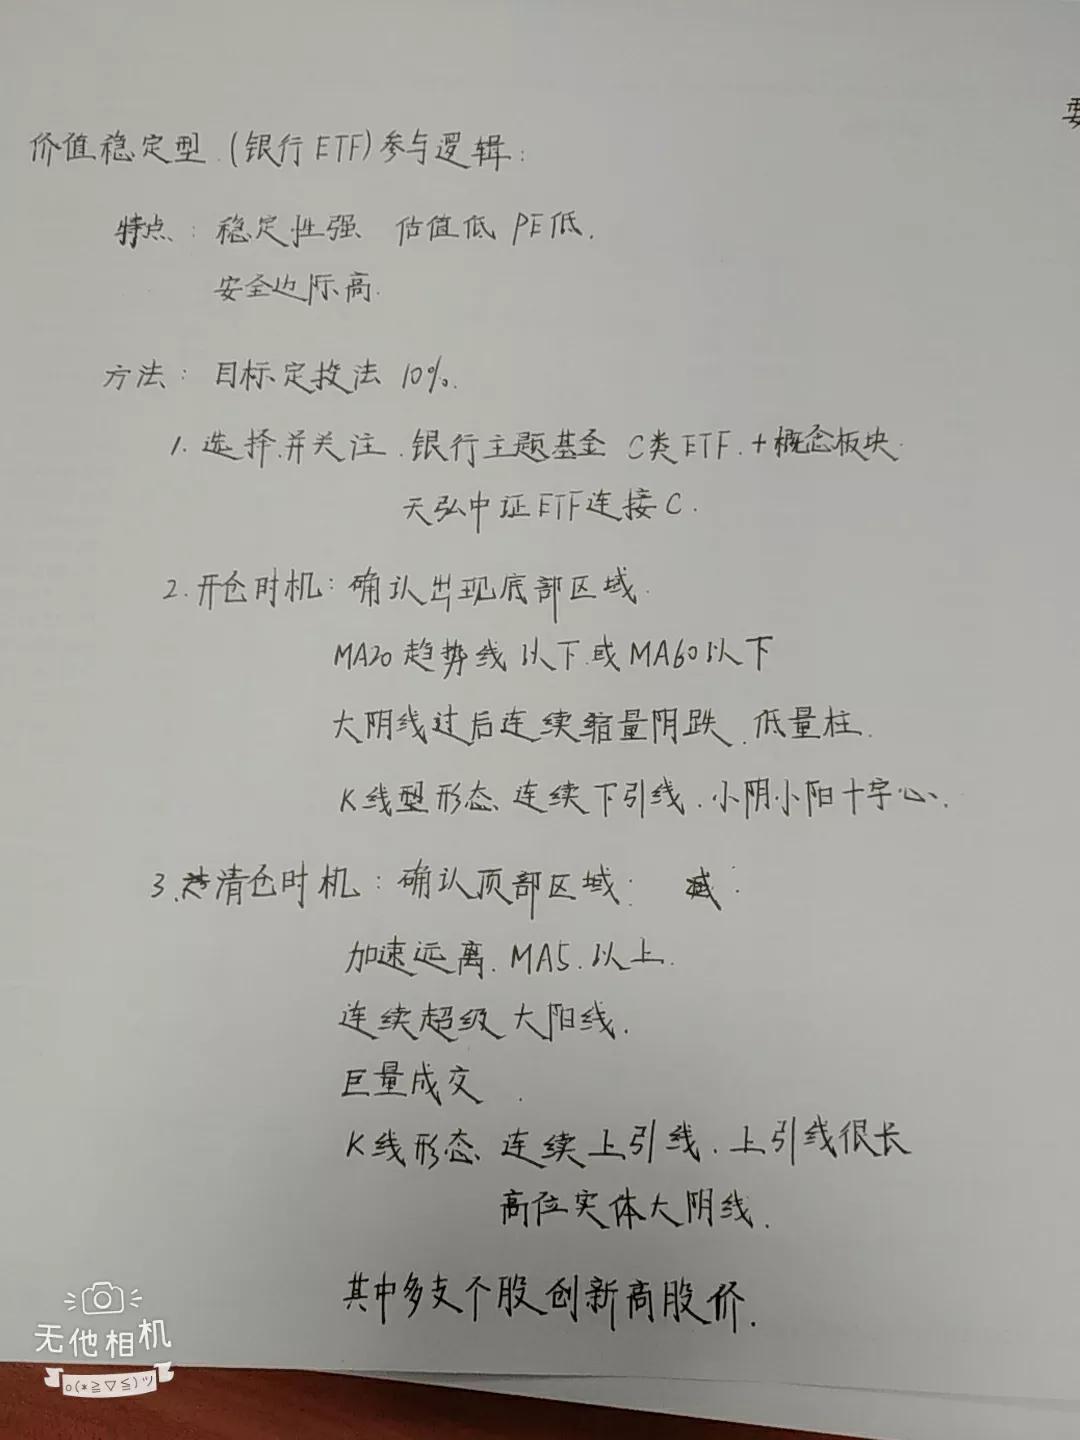 要
价值稳定型.(银行ETF)参与逻辑:
特点: 稳定性强 估值低 PE低.
安全边际高.
方法: 目标定投法 10%.
1.选择并关注.银行主题基金 C类ETF.+概念板块.
天弘中证ETF连接C.
2.开仓时机:确认出现底部区域.
MA20趋势线以下或MA60以下
大阴线过后连续缩量阴跌.低量柱.
K线型形态 连续下引线.小阴小阳十字心.
3.清仓时机:确认顶部区域:
加速远离.MA5.以上.
连续超级大阳线.
巨量成交.
K线形态 连续上引线.上引线很长
高位实体大阴线.
其中多支个股创新高股价.
无他相机
o(*≧▽≦)ツ